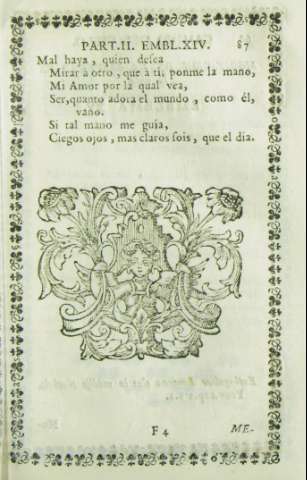 PART.II. EMBL.XIV. 87
Mal haya, quien desea
Mirar à otro, que à tì; ponme la mano,
Mi Amor por la qual vea,
Ser, quanto adora el mundo, como él,
vano.
Si tal mano me guia,
Ciegos ojos, mas claros sois, que el dia.
F 4 ME-